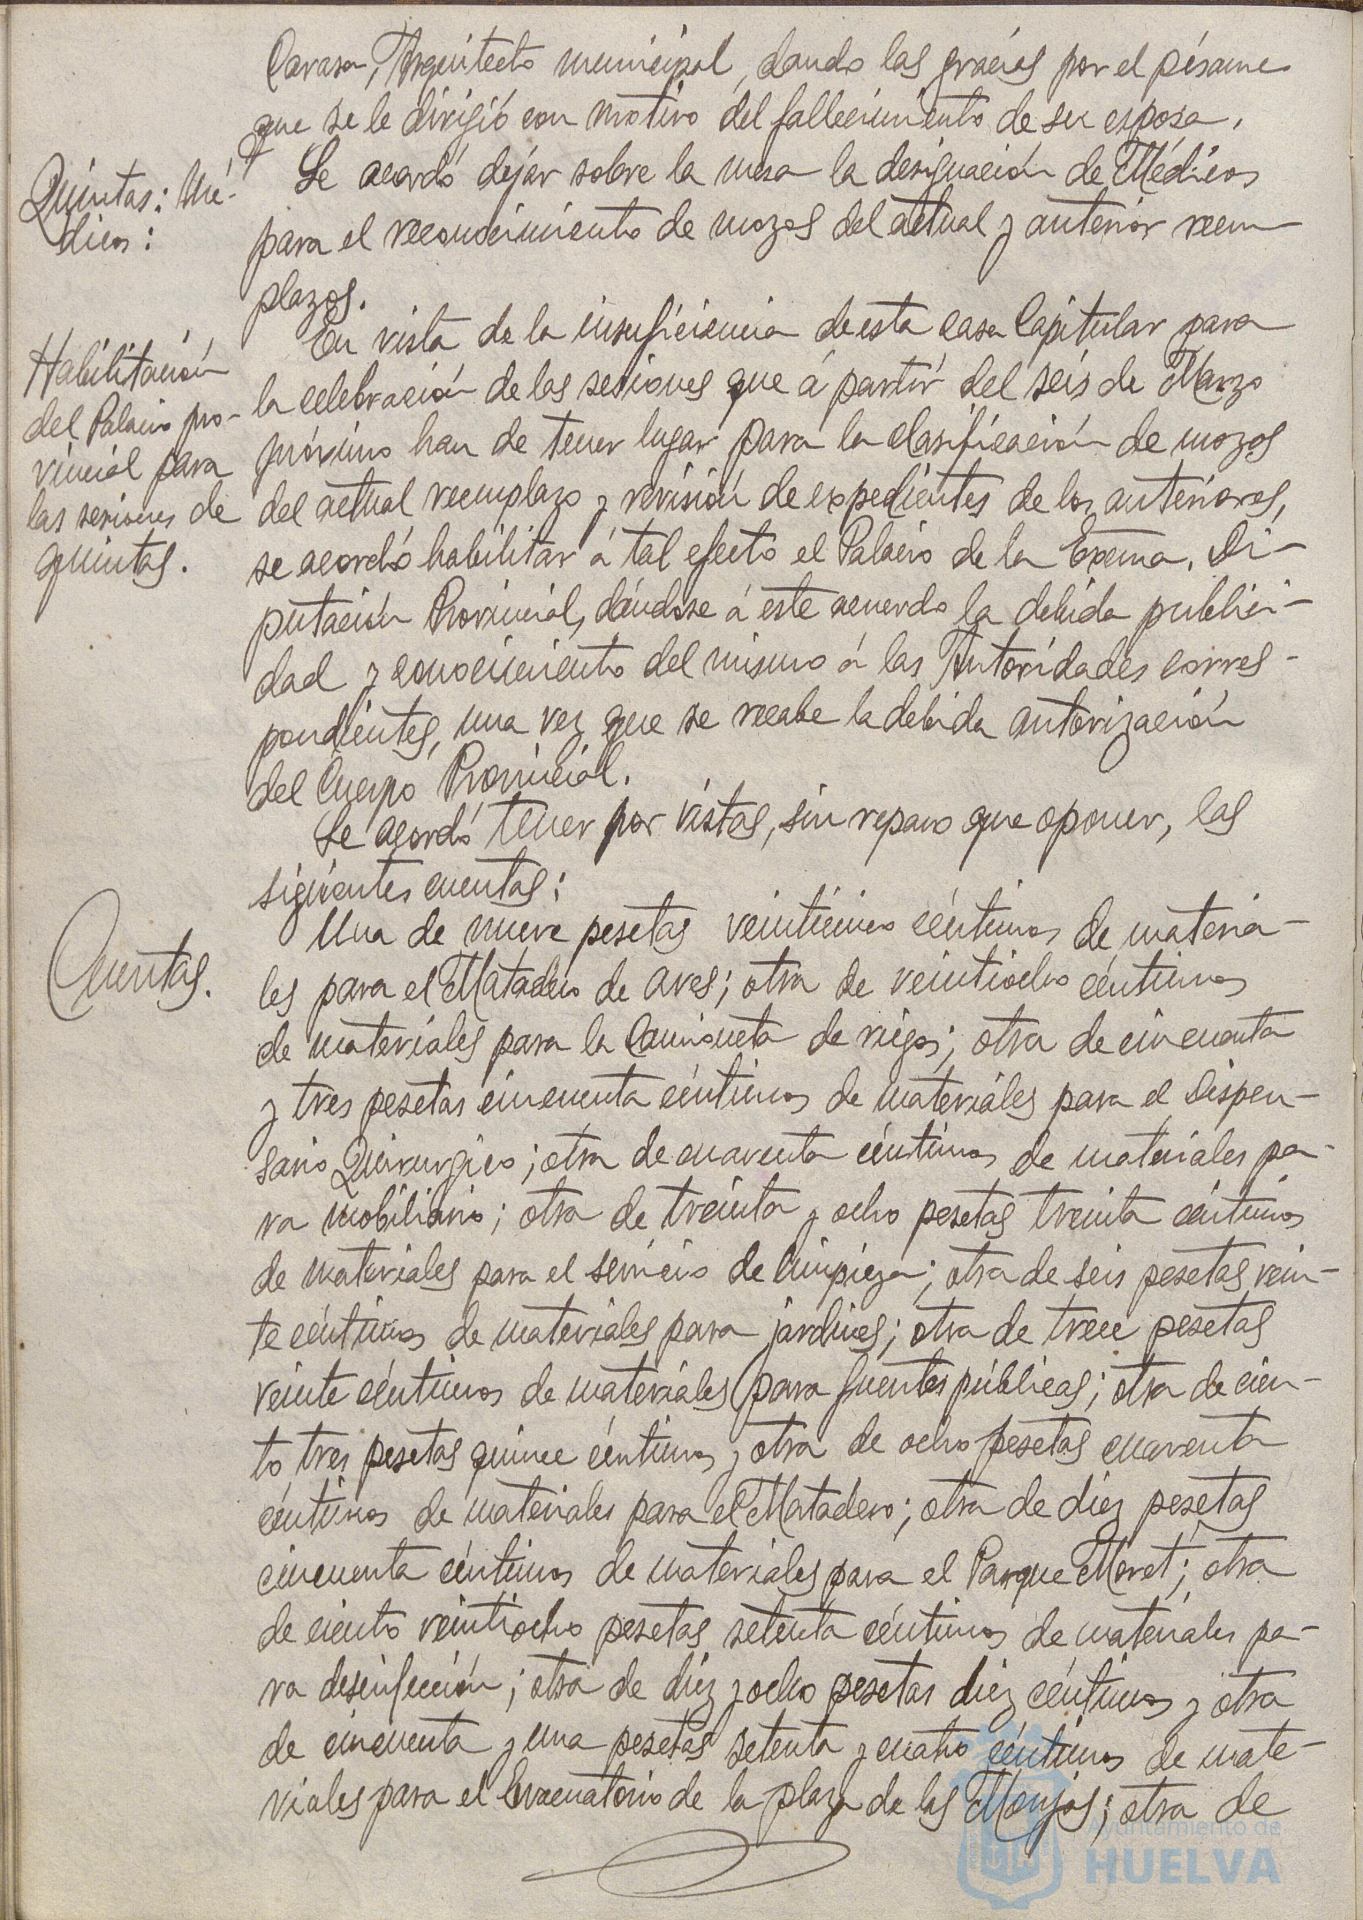 Carasa, Arquitecto municipal, dando las gracias por el pésame
que se le dirigió con motivo del fallecimiento de su esposa.
Quintas: Mé-
dicos:
Se acordó dejar sobre la mesa la designación de Médicos
para el reconocimiento de mozos del actual y anterior reem-
plazos.
Habilitación
del Palacio pro-
vincial para
las sesiones de
quintas.
En vista de la insuficiencia de esta casa Capitular para
la celebración de las sesiones que á partir del seis de Marzo
próximo han de tener lugar para la clasificación de mozos
del actual reemplazo y revisión de expedientes de los anteriores,
se acordó habilitar á tal efecto el Palacio de la Excma. Di-
putación Provincial, dándose á este acuerdo la debida publici-
dad y conocimiento del mismo á las Autoridades corres-
pondientes, una vez que se recabe la debida autorización
del Cuerpo Provincial.
Se acordó tener por vistas, sin reparo que oponer, las
siguientes cuentas:
Cuentas.
Una de nueve pesetas veinticinco céntimos de materia-
les para el Matadero de aves; otra de veintiocho céntimos
de materiales para la Camioneta de riegos; otra de cincuenta
y tres pesetas cincuenta céntimos de materiales para el Dispen-
sario Quirurgico; otra de cuarenta céntimos de materiales pa-
ra mobiliario; otra de treinta y ocho pesetas treinta céntimos
de materiales para el servicio de limpieza; otra de seis pesetas vein-
te céntimos de materiales para jardines; otra de trece pesetas
veinte céntimos de materiales para fuentes públicas; otra de cien-
to tres pesetas quince céntimos y otra de ocho pesetas cuarenta
céntimos de materiales para el Matadero; otra de diez pesetas
cincuenta céntimos de materiales para el Parque Moret; otra
de ciento veintiocho pesetas setenta céntimos de materiales pa-
ra desinfección; otra de diez y ocho pesetas diez céntimos y otra
de cincuenta y una pesetas setenta y cuatro céntimos de mate-
riales para el Evacuatorio de la plaza de las Monjas; otra de
Ayuntamiento de
HUELVA